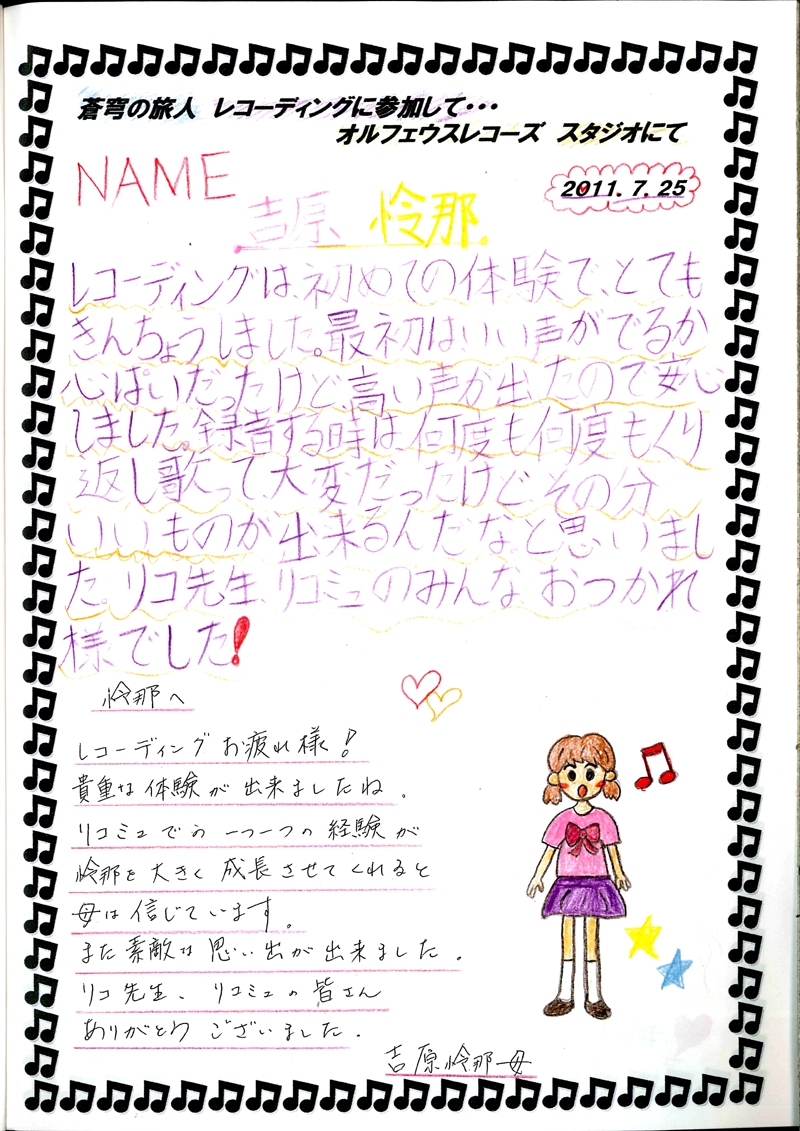 蒼穹の旅人 レコーディングに参加して・・・
オルフェウスレコーズ スタジオにて
NAME
2011.7.25
吉原 怜那
レコーディングは、初めての体験で、とても
きんちょうしました。最初はいい声がでるか
心ぱいだったけど、高い声が出たので安心
しました。録音する時は、何度も何度もくり
返し歌って、大変だったけど、その分
いいものが出来るんだな。と思いまし
た。リコ先生、リコミュのみんな おつかれ
様でした!
怜那へ
レコーディングお疲れ様!
貴重な体験が出来ましたね。
リコミュでの一つ一つの経験が
怜那を大きく成長させてくれると
母は信じています。
また素敵な思い出が出来ました。
リコ先生、リコミュの皆さん
ありがとうございました。
吉原怜那母